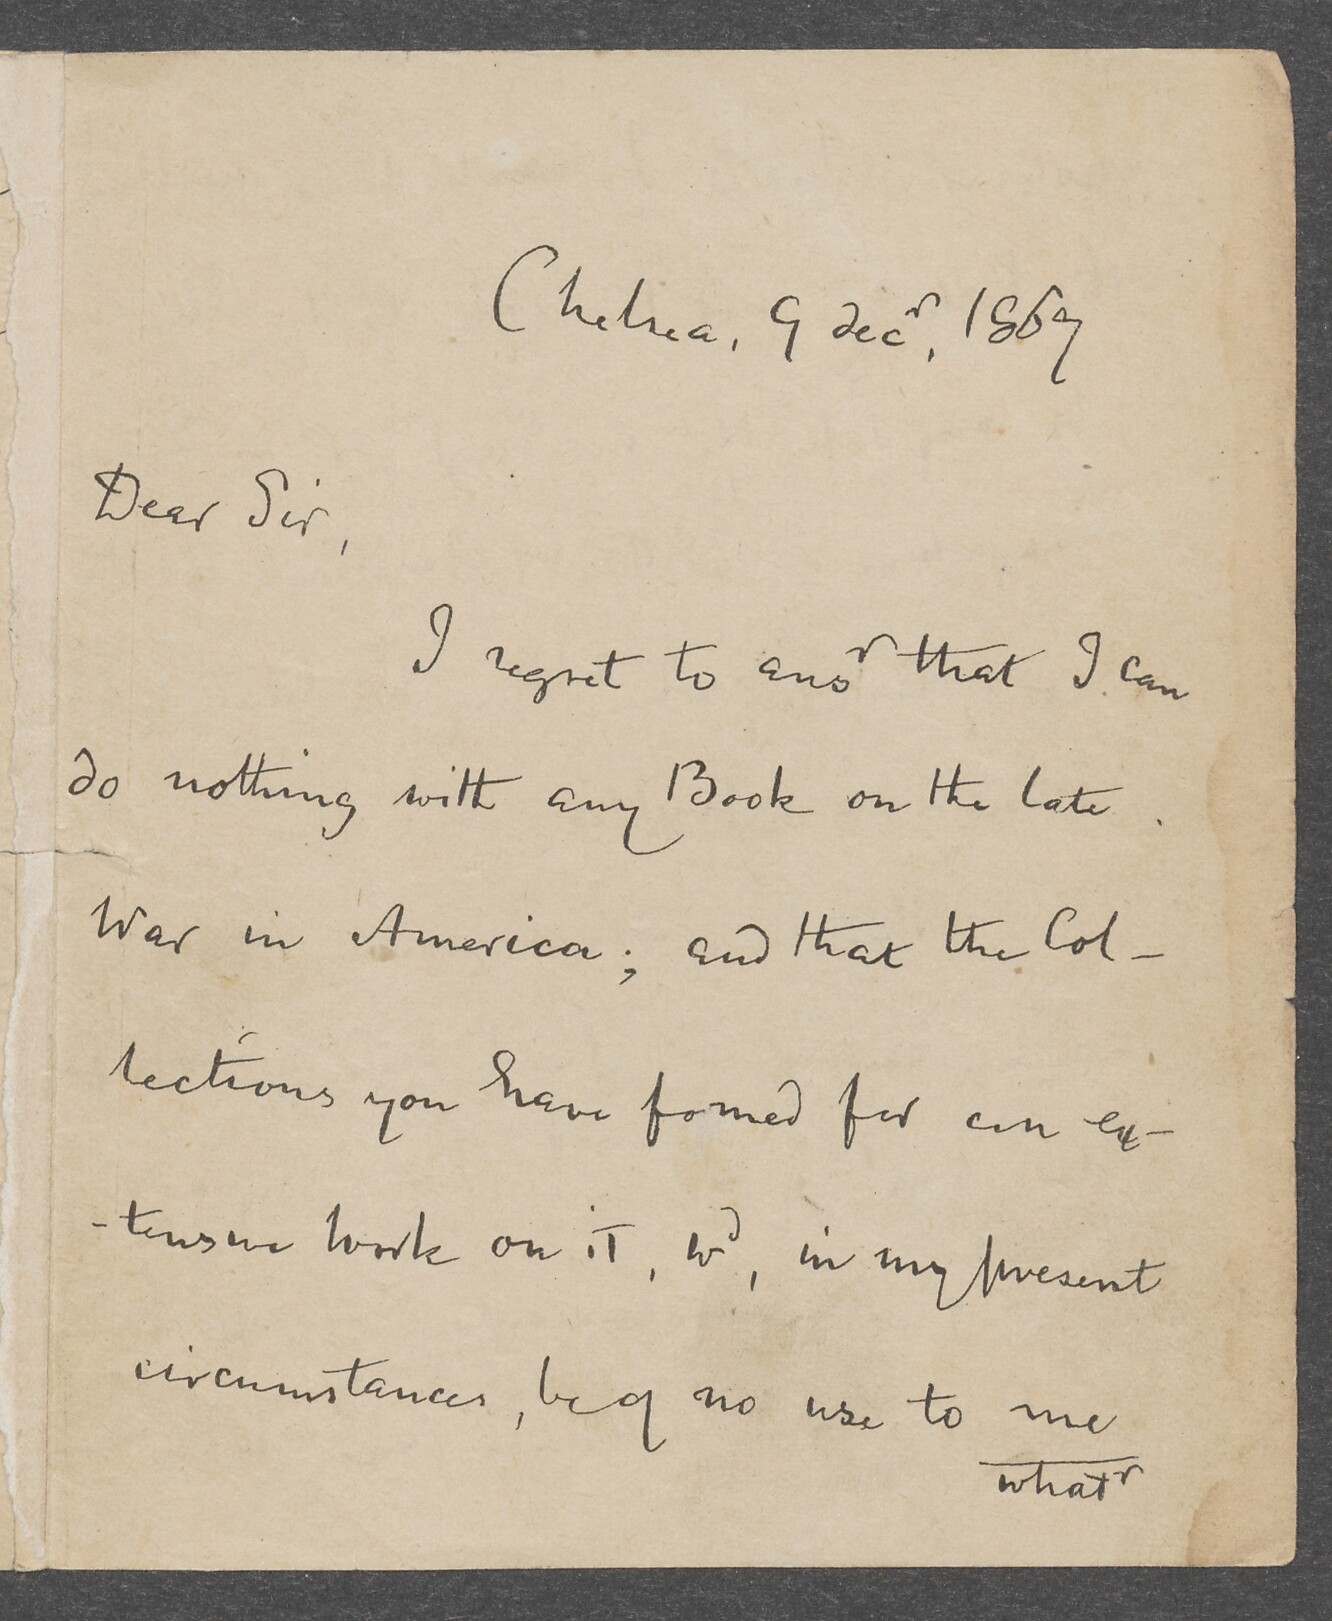 Chelsea, 9 decr, 1867
Dear Sir,
I regret to ansr that I can
do nothing with any Book on the late
War in America; and that the Col-
lections you have formed for an ex-
-tensive work on it, wd, in my present
circumstances, be of no use to me
whatr